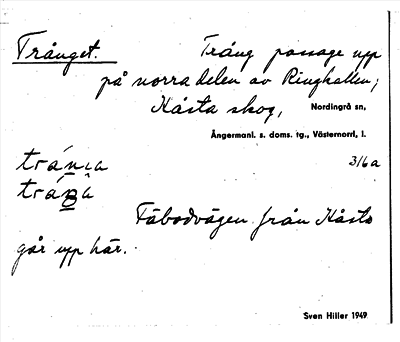 Trånget. Trång passage upp
på norra delen av Ringkallen,
Kåsta skog, Nordingrå sn,
Ångermanl. s. doms. tg., Västernorrl. l.
3/6a
Fäbodvägen från Kåsta
går upp här.
Sven Hiller 1949